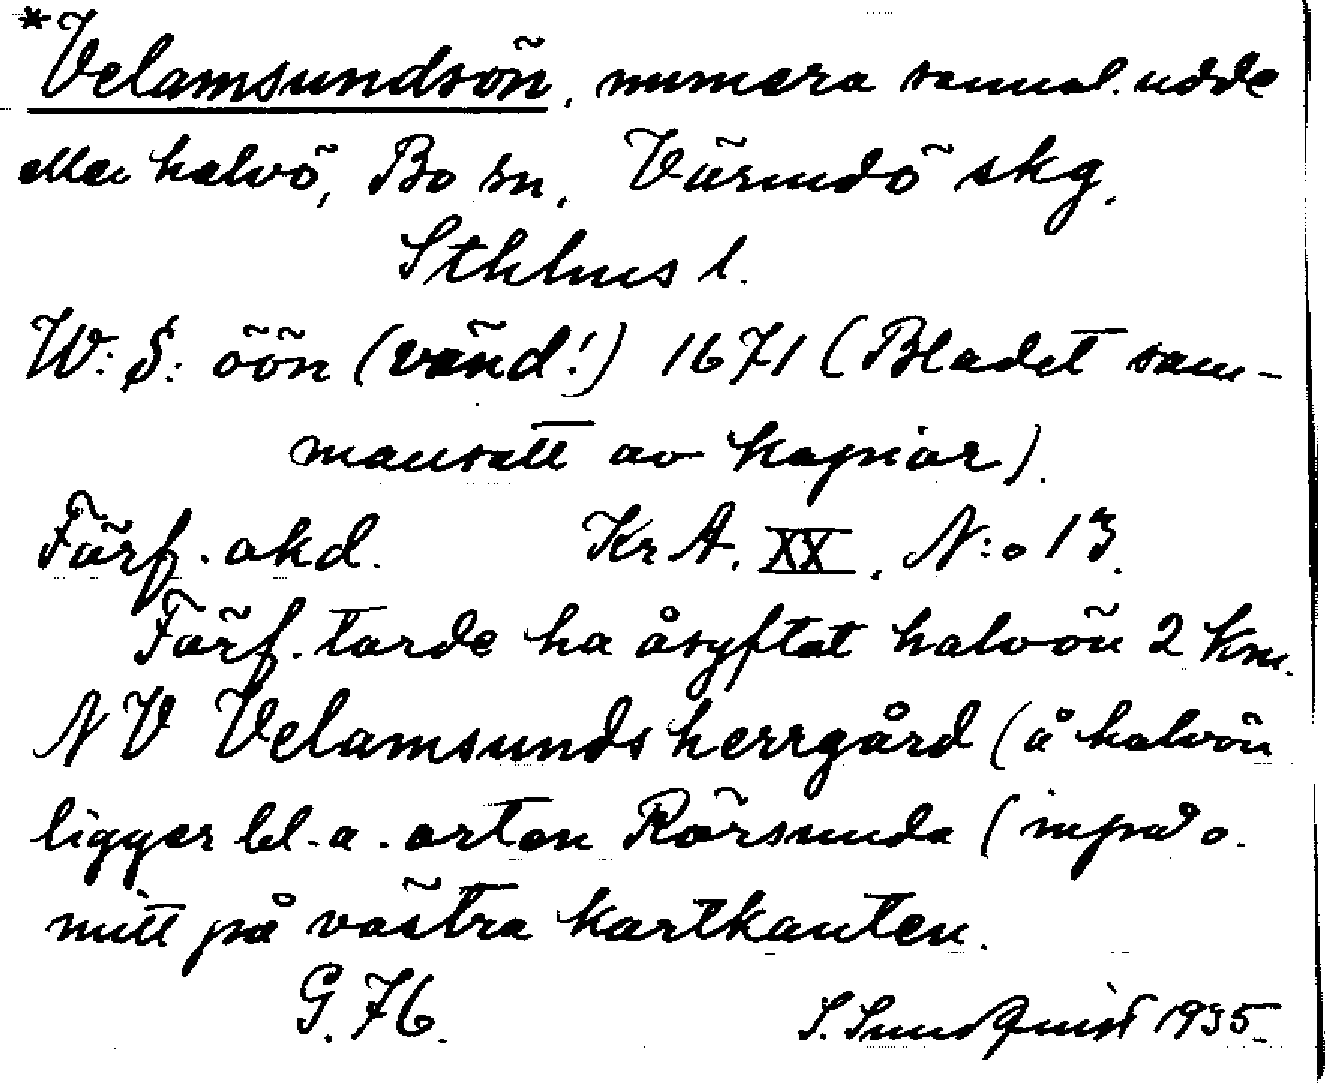 *Velamsundsön, numera sannol. udde
eller halvö, Bo sn, Värmdö skg,
Sthlms l.
W: S: öön (vänd!) 1671 (Bladet sam-
mansatt av kopior).
Förf. okd. Kr A. XX, N:o 13.
Förf. torde ha åsyftat halvön 2 km.
NV Velamsunds herrgård (å halvön
ligger bl. a. orten Rörsunda (inpå o.
mitt på västra kartkanten.
G. 76. S. Sundquist 1935